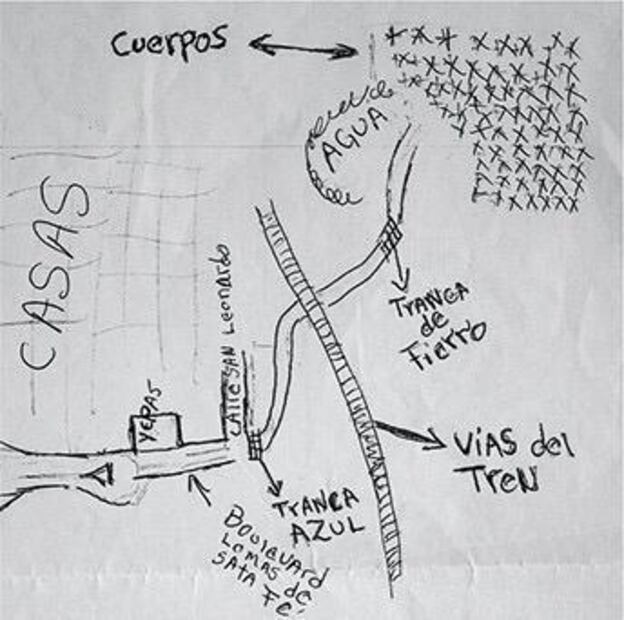 Cuerpos
AGUA
CASAS
TRANCA
de
Fierro
Calle SAN Leonardo
YEPAS
VíAS del
TreN
TrANCA
AZUL
Boulevard
LOMAS de
SATA Fé